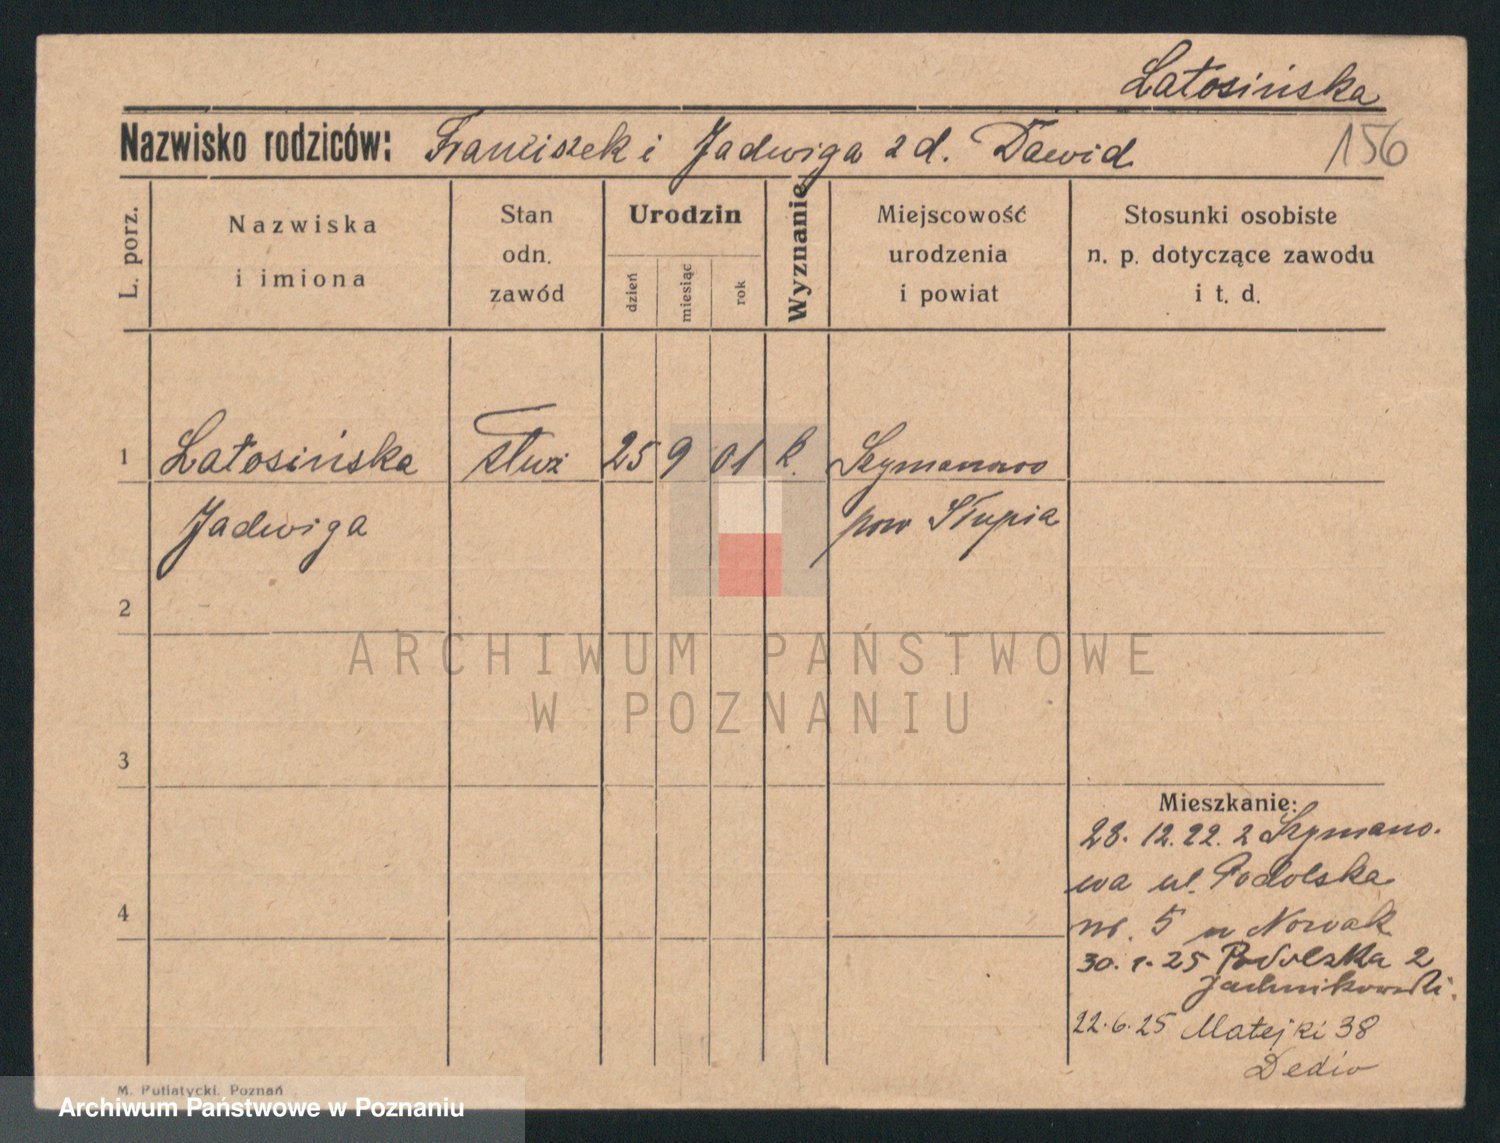 Latosińska
Nazwisko rodziców: Franciszek i Jadwiga z d. Dawid
156
L. porz.
Nazwiska
i imiona
Stan
odn.
zawód
Urodzin
dzień
miesiąc
rok
Wyznanie
Miejscowość
urodzenia
i powiat
Stosunki osobiste
n. p. dotyczące zawodu
i t. d.
1 Latosińska służ 25 9 01 k. Szymanowo
Jadwiga pow Słupia
2
ARCHIWUM PAŃSTWOWE
W POZNANIU
3
Mieszkanie:
28. 12. 22. z Szymano.
wa ul. Podolska
4
nr. 5 u Nowak
30. 1. 25 Podolska 2
Jachnikowski.
22. 6. 25 Matejki 38
Dedio
M. Putiatycki. Poznań
Archiwum Państwowe w Poznaniu